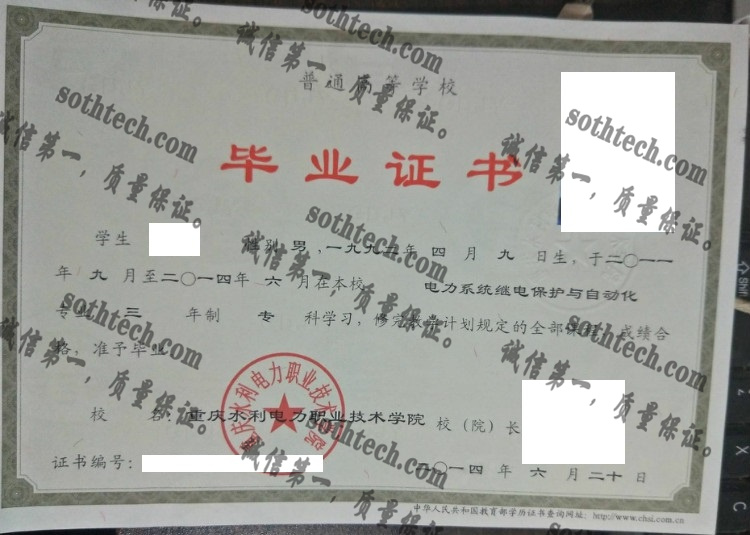 普通高等学校
毕业证书
学生 性别 男 ,一九九二年 四 月 九 日生，于二〇一一
年 九 月至二〇一四年 六 月在本校 电力系统继电保护与自动化
专业 三 年制 专 科学习，修完教学计划规定的全部课程，成绩合
格，准予毕业
校 名：重庆水利电力职业技术学院 校（院）长
证书编号：
二〇一四 年 六 月二十日
中华人民共和国教育部学历证书查询网址：http://www.chsi.com.cn
重庆水利电力职业技术学院
sothtech.com
诚信第一，质量保证。
sothtech.com
诚信第一，质量保证。
sothtech.com
诚信第一，质量保证。
sothtech.com
诚信第一，质量保证。
sothtech.com
诚信第一，质量保证。
sothtech.com
诚信第一，质量保证。
sothtech.com
诚信第一，质量保证。
Shift
X
C